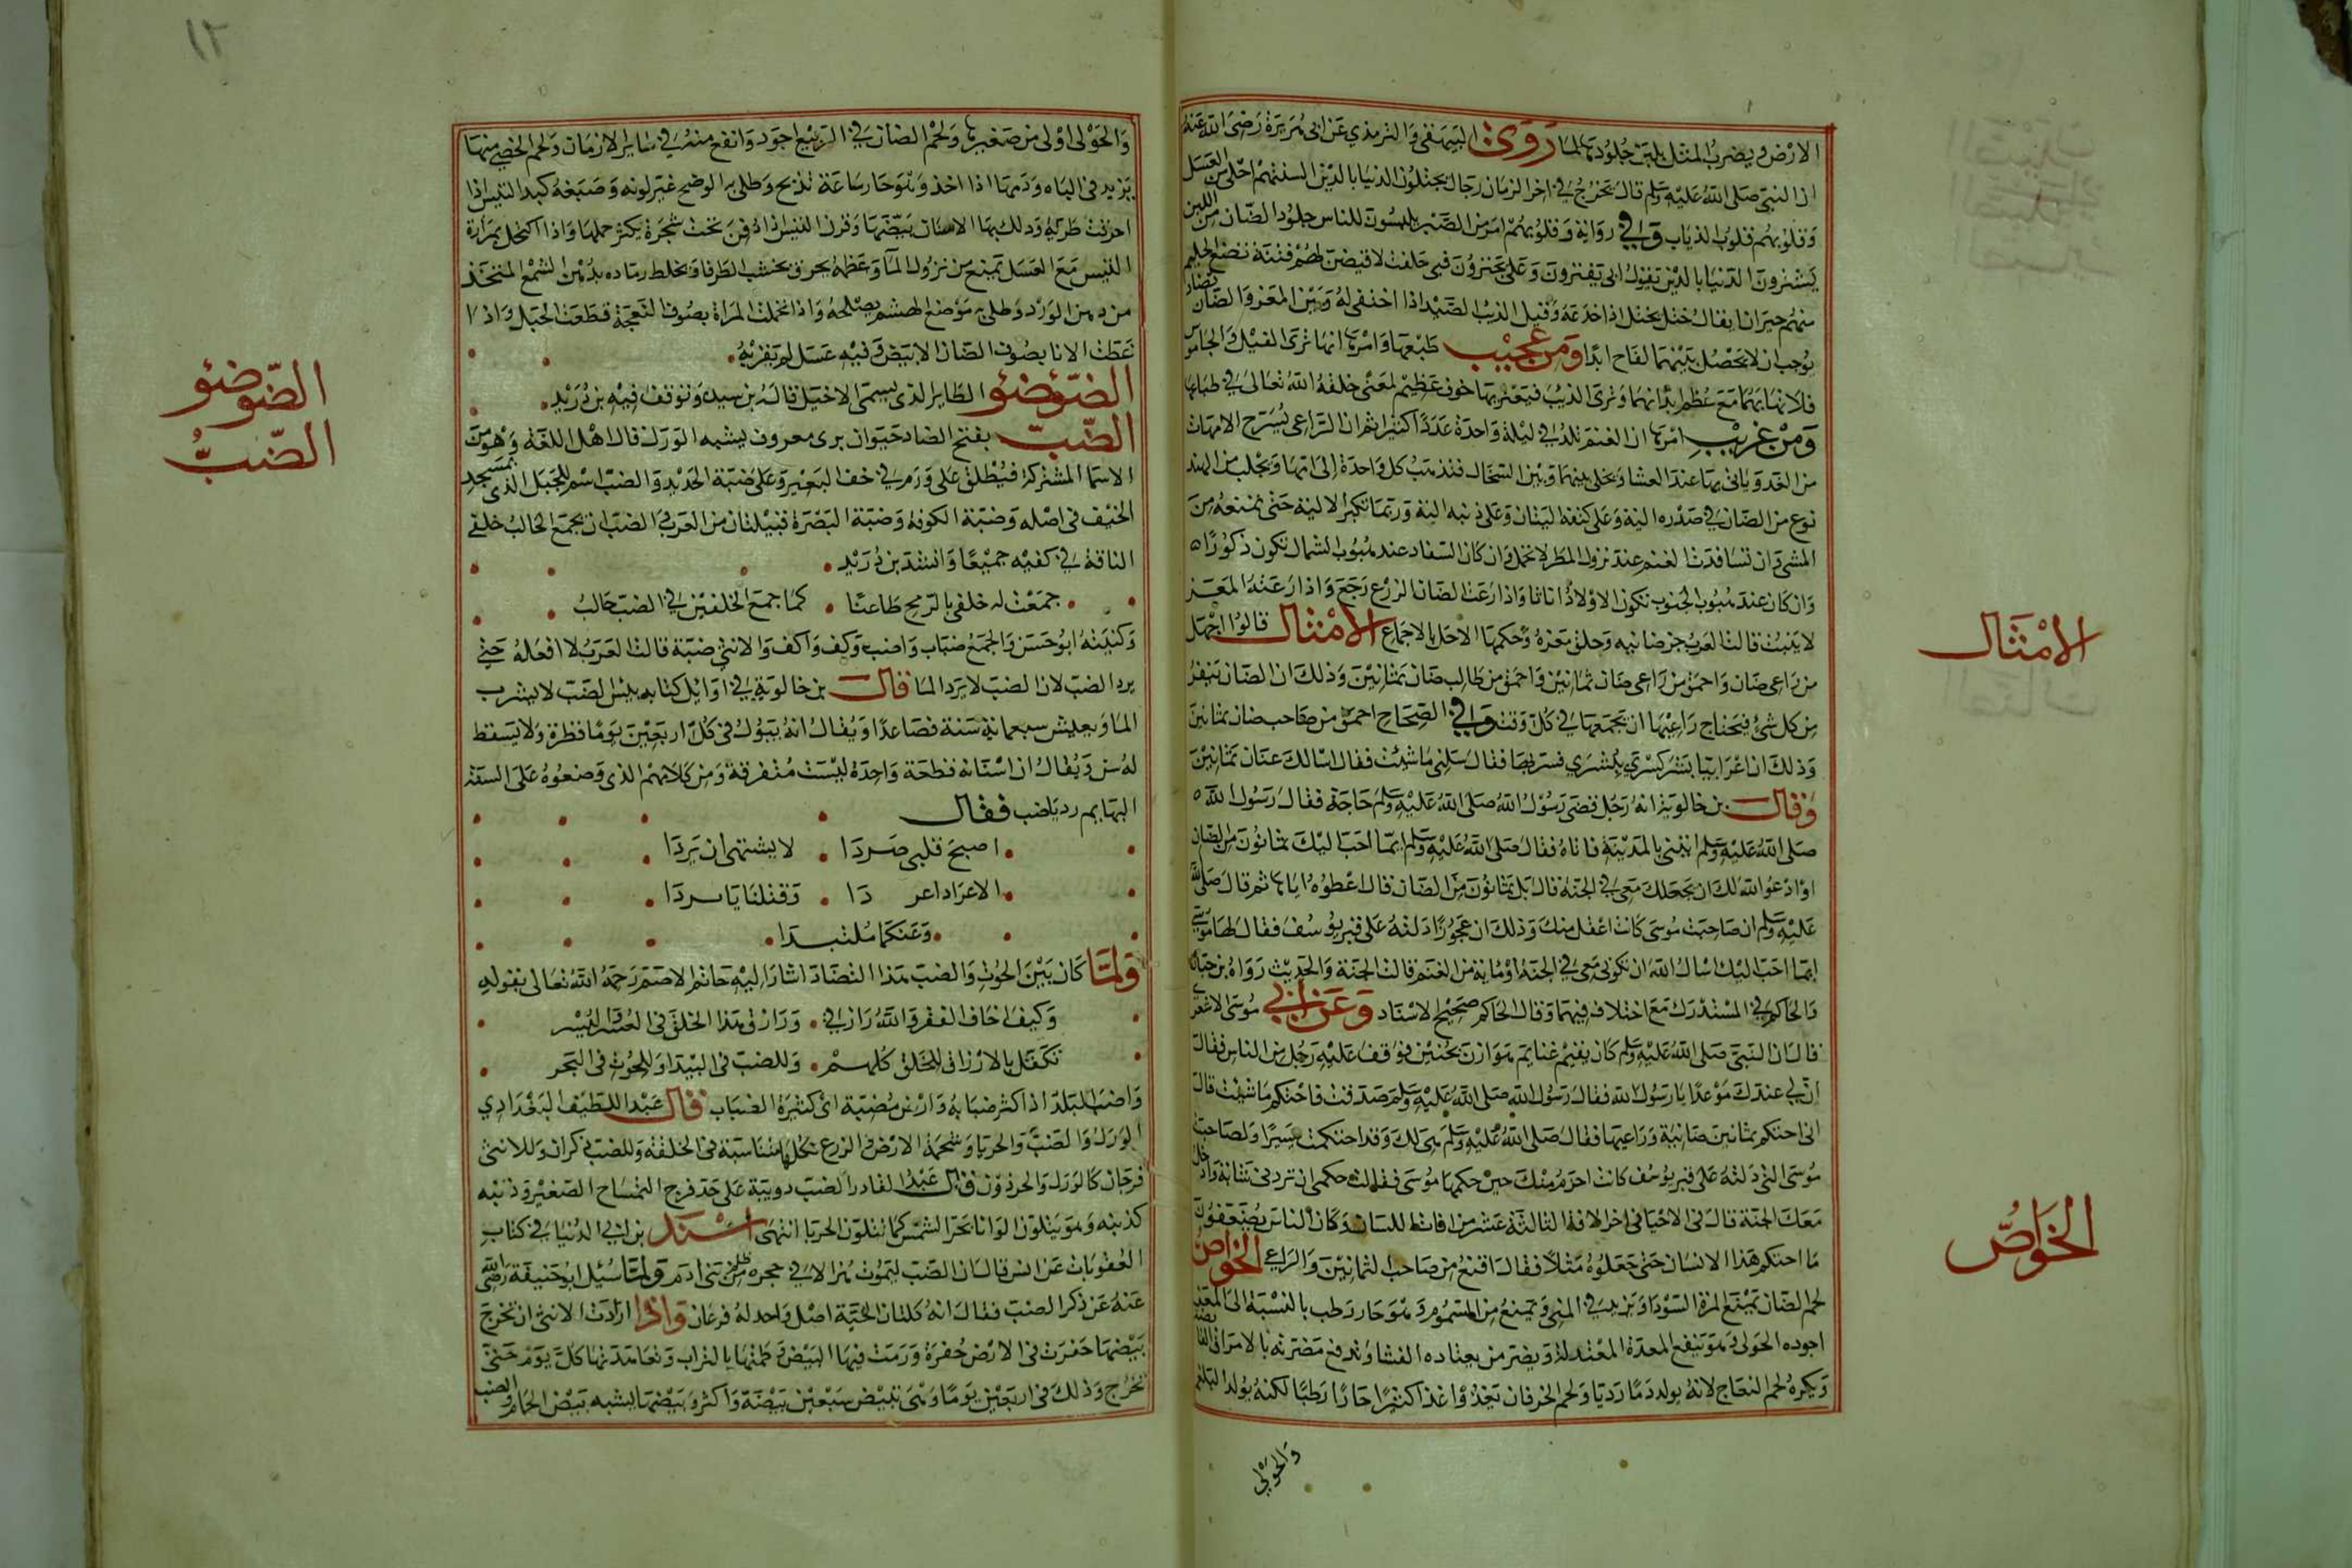 الارض ويضرب المثل بلين جلودها لما روى البيهقى والترمذي عن ابى هريرة رضى الله عنه
ان النبى صلى الله عليه وسلم قال يخرج في اخر الزمان رجال يختلون الدنيا بالدين السنتهم احلى من العسل
وقلوبهم قلوب الذياب وفي رواية وقلوبهم امر من الصبر يلبسون للناس جلود الضان من اللين
يشترون الدنيا بالدين يقول ابى يغترون وعلى يجترؤن فبى حلفت لاقيضن لهم فتنة تضع الحليم
منهم حيرانا يقال ختل يختل اذا خدعه وقيل الذيب الصيد اذا اختفى له وبين المعز والضان تضاد
يوجب ان لا يحصل بينهما لقاح ابدا ومن عجيب طبعها وامرها انها ترى الفيل والجاموس
فلا تهابهما مع عظم ابدانهما وترى الذيب فيعتريها خوف عظيم لمعنى خلقه الله تعالى في طباعها
ومن غريب امرها ان الغنم تلد في ليلة واحدة عددا كثيرا ثم ان الراعى يسرح الامهات
من الغد وياتى بها عند العشا ويخلى بينها وبين السخال فتذهب كل واحدة الى امها ويجلب من الهند
نوع من الضان في صدره الية وعلى كتفه اليتان وعلى ذنبه الية وربما تكبر الالية حتى تمنعه من
المشى وان تسافدت الغنم عند نزول المطر لا تحمل وان كان السفاد عند هبوب الشمال تكون ذكورا
وان كان عند هبوب الجنوب تكون الاولاد اناثا واذا رعت الضان الزرع رجع واذا رعته المعز
لا ينبت قالت العرب جز ضانيه وحلق معزه وحكمها الاحل بالاجماع الامثال قالوا اجهل
من راعى ضان واحمق من راعى ضان ثمانين واحمق من طالب ضان ثمانين وذلك ان الضان تنفر
من كل شئ فيحتاج راعيها ان يجمعها في كل وقت وفي الصحاح احمق من صاحب ضان ثمانين
وذلك ان اعرابيا بشر كسرى ببشرى فسر بها فقال سلنى ما شئت فقال اسالك عنان ثمانين
وقال بن خالويه انه رجل قضى رسول الله صلى الله عليه وسلم حاجة فقال رسول الله
صلى الله عليه وسلم ايتنى بالمدينة فاتاه فقال صلى الله عليه وسلم ايما احب اليك ثمانون من الضان
او ادعو الله لك ان يجعلك معى في الجنة قال بل ثمانون من الضان قال اعطوه اياها ثم قال صلى الله
عليه وسلم ان صاحبت موسى كانت اعقل منك وذلك ان عجوزا دلته على قبر يوسف فقال لها موسى
ايما احب اليك اسال الله ان تكونى معى في الجنة او ماية من الغنم قالت الجنة والحديث رواه بن حبان
والحاكم في المستدرك مع اختلاف فيهما وقال الحاكم صحيح الاسناد وعن ابي موسى الاشعرى
قال ان النبى صلى الله عليه وسلم كان يقيم غنايم هوازن بحنين فوقف عليه رجل من الناس فقال
ان لي عندك موعدا يا رسول الله فقال رسول الله صلى الله عليه وسلم صدقت فاحتكم ما شئت قال
انى احتكم ثمانين ضانية وراعيها فقال صلى الله عليه وسلم هى لك وقد احتكمت يسيرا ولصاحبة
موسى التى دلته على قبر يوسف كانت احزم منك حين حكمها موسى فقالت حكمى ان تردنى شابة وادخل
معك الجنة قال فى الاحيا فى اخر الافة الثالثة عشر من افات اللسان وكان الناس يضعفون
ما احتكم هذا الانسان حتى جعلوه مثلا فقال اقنع من صاحب الثمانين والراعي الخواص
لحم الضان يمنع المرة السودا ويزيد في المنى ويمنع من السموم وهو حار رطب بالنسبة الى المعز
اجوده الحولى وهو ينفع المعدة المعتدلة ويضر من يعتاده الغشا وتدفع مضرته بالامراق القابضة
ويكره لحم النعاج لانه يولد دما رديا ولحم الخرفان تغذوا غذا كثيرا حارا رطبا لكنه يولد البلغم
والحولى
الامثال
الخواص
١٢
والحولى اولى من صغيرها ولحم الضان في الربيع اجود وانفع منه في ساير الازمان ولحم الخصى منها
يزيد فى الباه ودمها اذا اخذ وهو حار ساعة تذبح وطلى به الوضح غير لونه وضيعه كبد التيس اذا
احرقت طرية ودلك بها الاسنان بيضها وقرن التيس اذا دفن تحت شجرة يكثر حملها واذا اكتحل بمرارة
التيس مع العسل تمنع من نزول الما وعظمه يحرق بخشب الطرفا ويخلط رماده بدهن الشمع المتخذ
من دهن الورد وطلى به موضع الهشم يصلحه واذا تحملت المراة بصوف النعجة قطعت الحبل واذا
غطت الانا بصوف الضان الابيض وفيه عسل لم يقربه
الضؤضؤ الطاير الذى يسمى الاخيل قاله بن سيده وتوقف فيه بن دريد
الضب بفتح الضاد حيوان برى معروف يشبه الورل قال اهل اللغة وهو من
الاسما المشتركة فيطلق على ورم في خف البعير وعلى ضبة الحديد والضب اسم للجبل الذى بمسجد
الخيف فى اصله وضبة الكوفة وضبة البصرة قبيلتان من العرب والضب ان يجمع الحالب خلفى
الناقة في كفيه جميعا وانشد بن دريد
جمعت له خلفى بالرمح طاعنا كما جمع الخلفين في الضب حالب
وكنيته ابو حسن والجمع ضباب واضب وكف واكف والانثى ضبة قالت العرب لا افعله حتى
يرد الضب لان الضب لا يرد الما قال بن خالويه في اوايل كتاب ليس الضب لا يشرب
الما ويعيش سبعماية سنة فصاعدا ويقال انه يبول فى كل اربعين يوما قطرة ولا يسقط
له سن ويقال ان اسنانه قطعة واحدة ليست متفرقة ومن كلامهم الذى وضعوه على السنة
البهايم رد ياضب فقال
اصبح قلبى صردا لا يشتهى ان يردا
الا عرادا عردا وقتلنا يا سردا
وعنكما ملتبدا
ولما كان بين الحوت والضب هذا التضاد اشار اليه حاتم الاصم رحمه الله تعالى بقوله
وكيف اخاف الفقر والله رازقي ورازق هذا الخلق فى العسر اليسر
تكفل بالارزاق للخلق كلهم وللضب فى البيدا وللحوت فى البحر
واضب البلد اذا كثر ضبابه وارض مضبة اى كثيرة الضباب قال عبد اللطيف البغدادي
الورل والضب والحربا وشحمة الارض والوزغ كلها متناسبة فى الخلقة وللضب ذكران وللانثى
فرجان كالورل والحرذون قال عبد القادر الضب دويبة على حد فرج التمساح الصغير وذنبه
كذنبه وهو يتلون الوانا بحر الشمس كما يتلون الحربا انتهى اسند بن ابي الدنيا في كتاب
العقوبات عن انس قال ان الضب ليموت هزالا في جحره من ظلم بنى ادم ولما سئل ابو حنيفة رضى الله
عنه عن ذكر الضب فقال انه كلسان الحية اصل واحد له فرعان واذا ارادت الانثى ان تخرج
بيضها حفرت فى الارض حفرة ورمت فيها البيض وطمتها بالتراب وتعاهدتها كل يوم حتى
تخرج وذلك فى اربعين يوما وهى تبيض سبعين بيضة واكثر وبيضها يشبه بيض الحمام والضب
الضؤضؤ
الضب